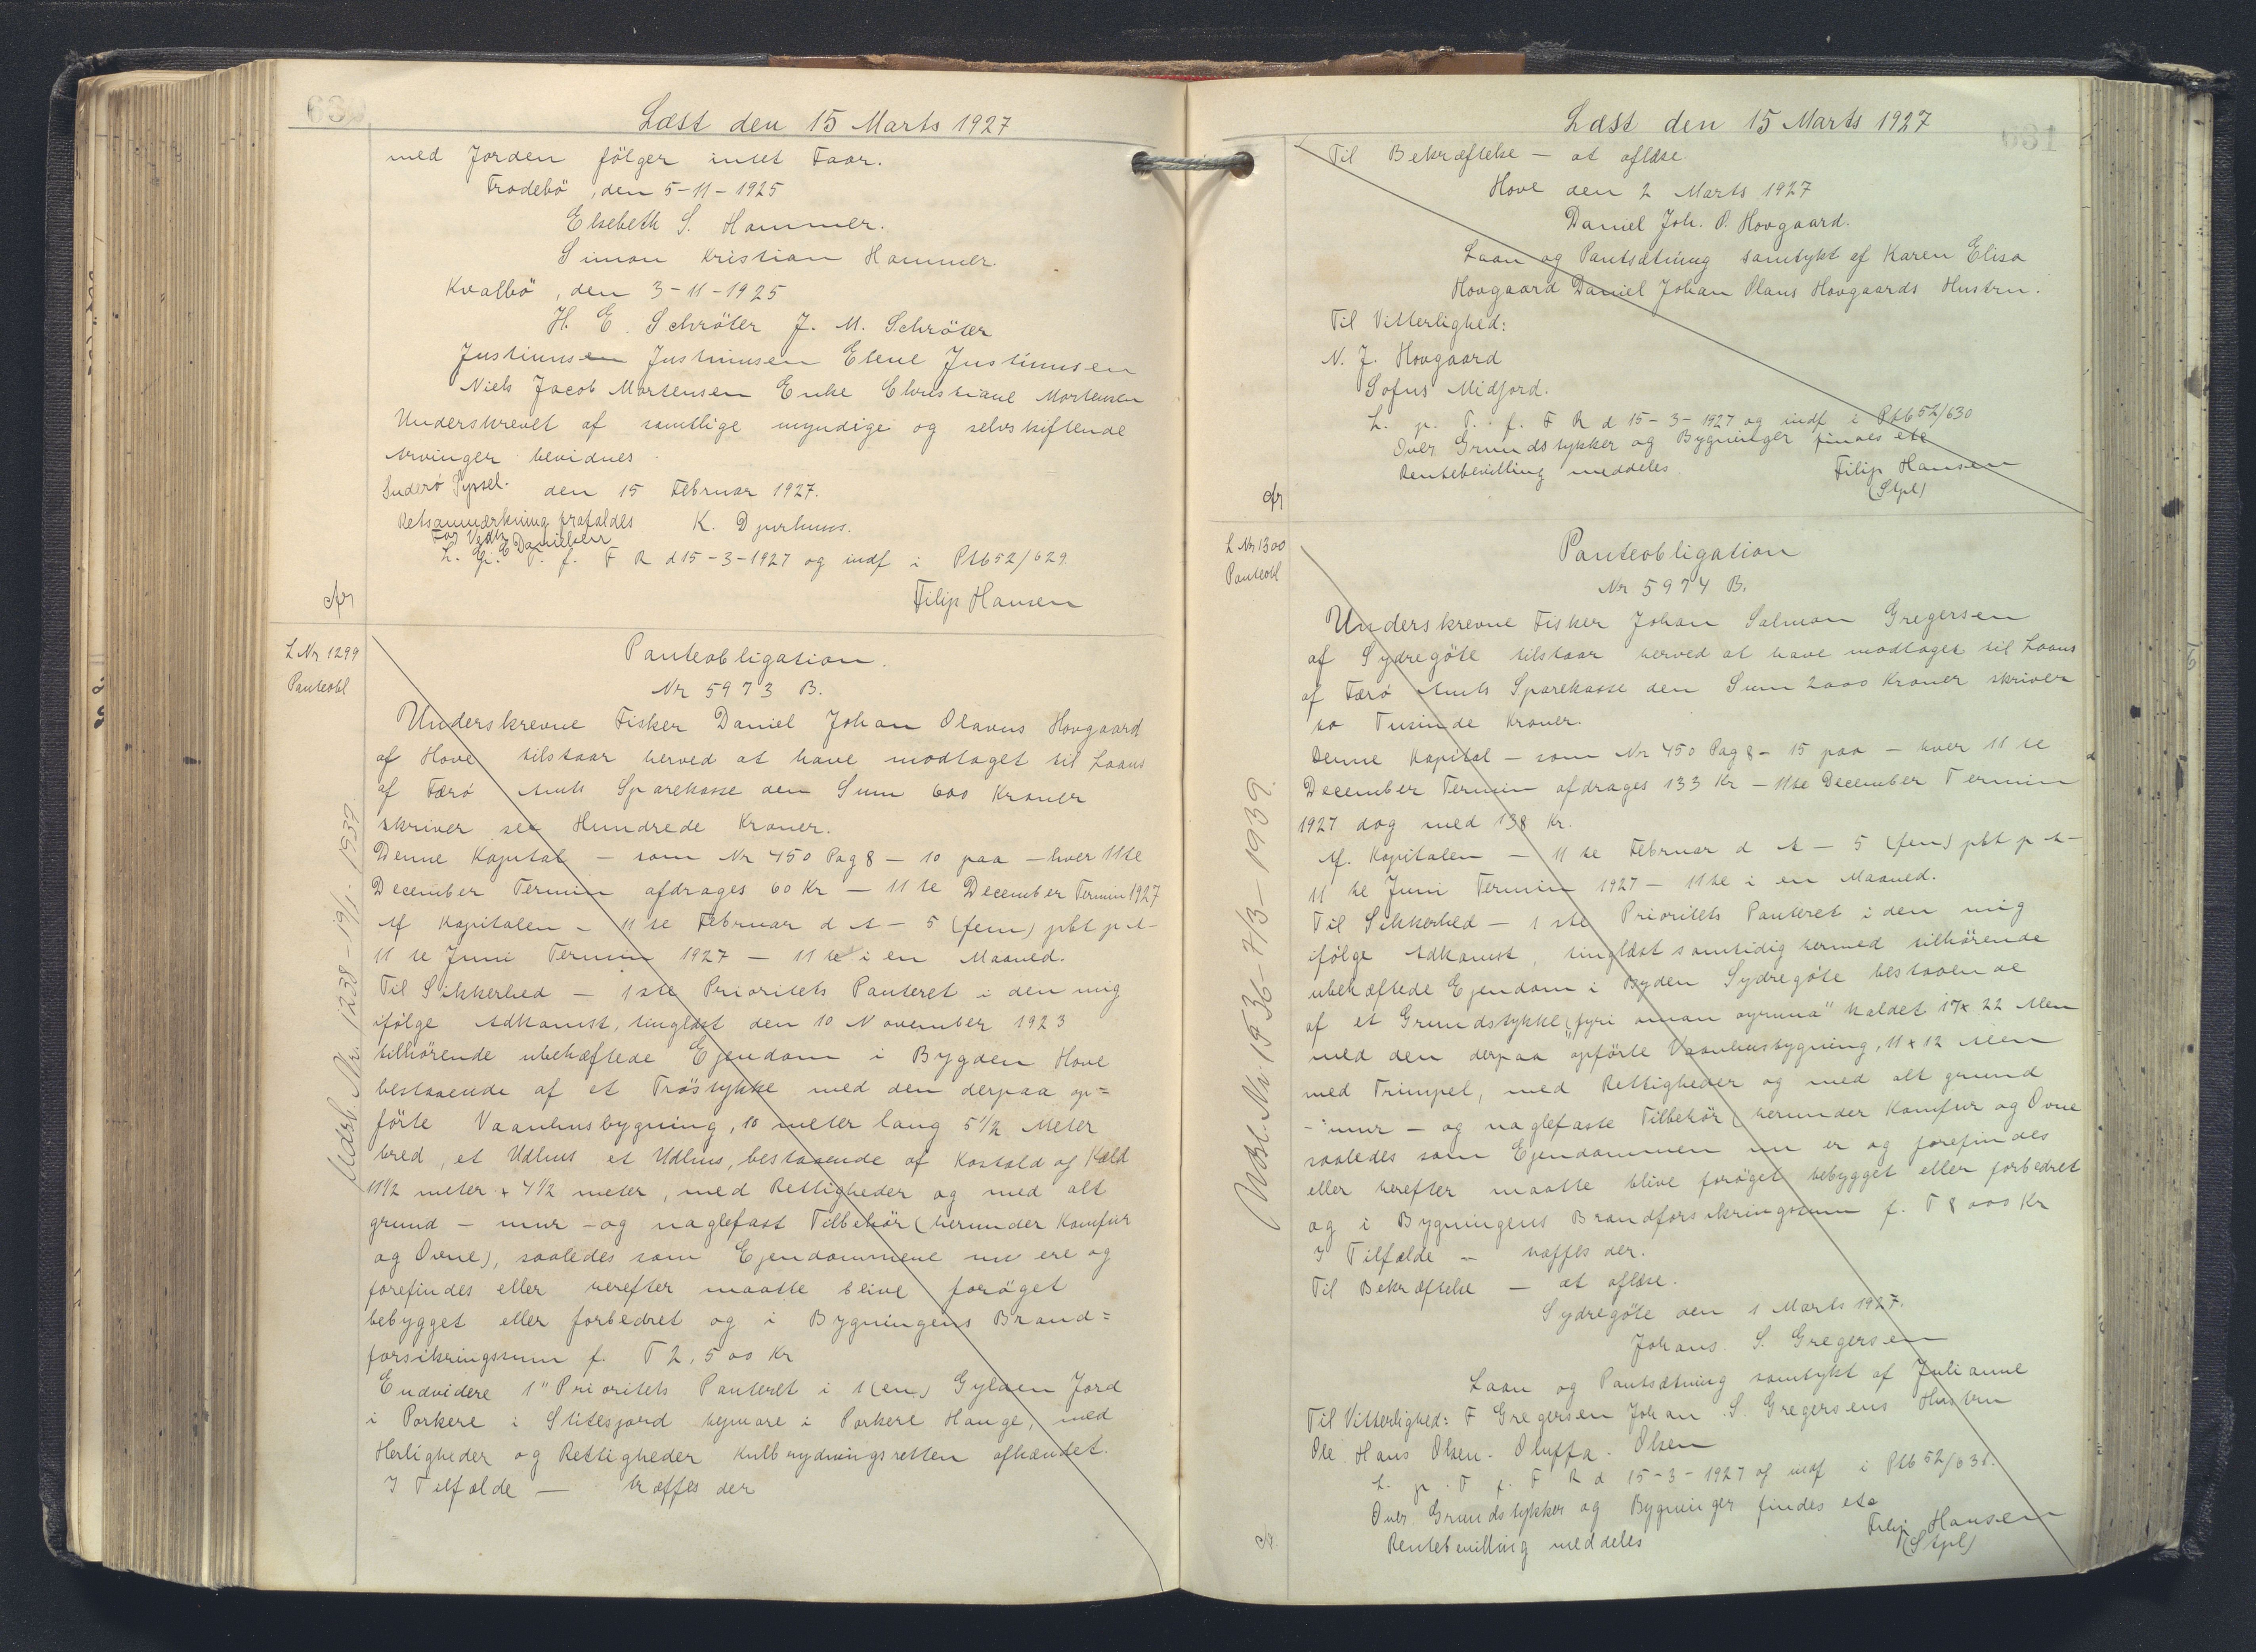 630
Læst den 15 Marts 1927
med Jorden følger intet Faar.
Frodebö, den 5-11-1925
Elsebeth S. Hammer.
Simon Kristian Hammer.
Kvalbö, den 3-11-1925
H. E. Schröter J. M. Schröter
Justinussen Justinussen Elene Justinussen
Niels Jacob Mortensen Enke Christiane Mortensen
Underskrevet af samtlige myndige og selvskiftende
Arvinger bevidnes.
Suderö Syssel. den 15 Februar 1927.
Retsanmærkning frafaldes K. Djurhuus.
For Vedk. E Danielsen
L. p. T. f. F R d 15-3-1927 og indf i Ptb 52/629.
cfr
Filip Hansen
L Nr 1299
Panteobl
Panteobligation.
Nr 5973 B.
Underskrevne Fisker Daniel Johan Olavus Hovgaard
af Hove tilstaar herved at have modtaget til Laans
af Færø Amts Sparekasse den Sum 600 Kroner
skriver sex Hundrede Kroner.
Denne Kapital - som Nr 450 Pag 8 - 10 paa - hver 11te
December Termin afdrages 60 Kr - 11 te December Termin 1927
Af Kapitalen - 11 te Februar d A - 5 (fem) pbt p A -
11 te Juni Termin 1927 - 11 te i en Maaned.
Til Sikkerhed - 1ste Prioritets Panteret i den mig
ifølge Adkomst, tinglæst den 10 November 1923
tilhörende ubehæftede Ejendom i Bygden Hove
bestaaende af et Tröstykke med den derpaa op=
förte Vaanhusbygning, 10 meter lang 5 1/2 Meter
bred, et Udhus et Udhus, bestaaende af Kostald og Kæld
11 1/2 meter x 4 1/2 meter, med Rettigheder og med alt
grund - mur - og naglefast Tilbehör (herunder Komfur
og Ovne), saaledes som Ejendommene nu ere og
forefindes eller herefter maatte blive forøget
bebygget eller forbedret og i Bygningens Brand=
forsikringssum f. T 2,500 Kr
Endvidere 1" Prioritets Panteret i 1(en) Gylden Jord
i Porkere i Stitesjord heimare i Porkere Hauge, med
Herligheder og Rettigheder Kulbrydningsretten afhændet.
I Tilfælde - træffes der
Udsl. Nr. 1238 - 19/1 - 1937.
631
Læst den 15 Marts 1927
Til Bekræftelse - at aflæse
Hove den 2 Marts 1927
Daniel Joh. O. Hovgaard.
Laan og Pantsætning samtykt af Karen Elisa
Hovgaard Daniel Johan Olaus Hovgaards Hustru.
Til Vitterlighed:
N. J. Hovgaard
Sofus Midjord.
L. p. T. f. F R d 15-3-1927 og indf i Ptb 52/630
Over Grundstykker og Bygninger findes etc
Rentebevilling meddeles. Filip Hansen
(Stpl)
cfr
L Nr 1300
Panteobl
Panteobligation
Nr 5974 B.
Underskrevne Fisker Johan Salmon Gregersen
af Sydregöte tilstaar herved at have modtaget til Laans
af Færö Amts Sparekasse den Sum 2000 Kroner skriver
to Tusinde Kroner.
Denne Kapital - som Nr 450 Pag 8 - 15 paa - hver 11 te
December Termin afdrages 133 Kr - 11te December Termin
1927 dog med 138 Kr.
Af Kapitalen - 11 te Februar d A - 5 (fem) pbt p A -
11 te Juni Termin 1927 - 11te i en Maaned.
Til Sikkerhed - 1 ste Prioritets Panteret i den mig
ifölge Adkomst, tinglæst samtidig hermed tilhörende
ubehæftede Ejendom i Byden Sydregöte bestaaende
af et Grundstykke "fyri oman oyruna" kaldet 17 x 22 Alen
med den derpaa opförte Vaanhusbygning, 11 x 12 Alen
med Trimpel, med Rettigheder og med alt grund
- mur - og naglefaste Tilbehör (herunder Komfur og Ovne
saaledes som Ejendommen nu er og forefindes
eller herefter maatte blive forøget bebygget eller forbedret
og i Bygningens Brandforsikringssum f. T 8000 Kr
I Tilfælde - træffes der.
Til Bekræftelse - at aflæse.
Sydregöte den 1 Marts 1927.
Johans. S. Gregersen
Laan og Pantsætning samtykt af Julianne
Til Vitterlighed: F Gregersen Johan S. Gregersens Hustru
Ole Hans Olsen. Oluffa. Olsen
L. p. T f. F R d 15-3-1927 og indf i Ptb 52/631.
Over Grundstykker og Bygninger findes etc
Rentebevilling meddeles Filip Hansen
(Stpl)
cfr
Udsl. Nr. 1536 - 7/3 - 1939.